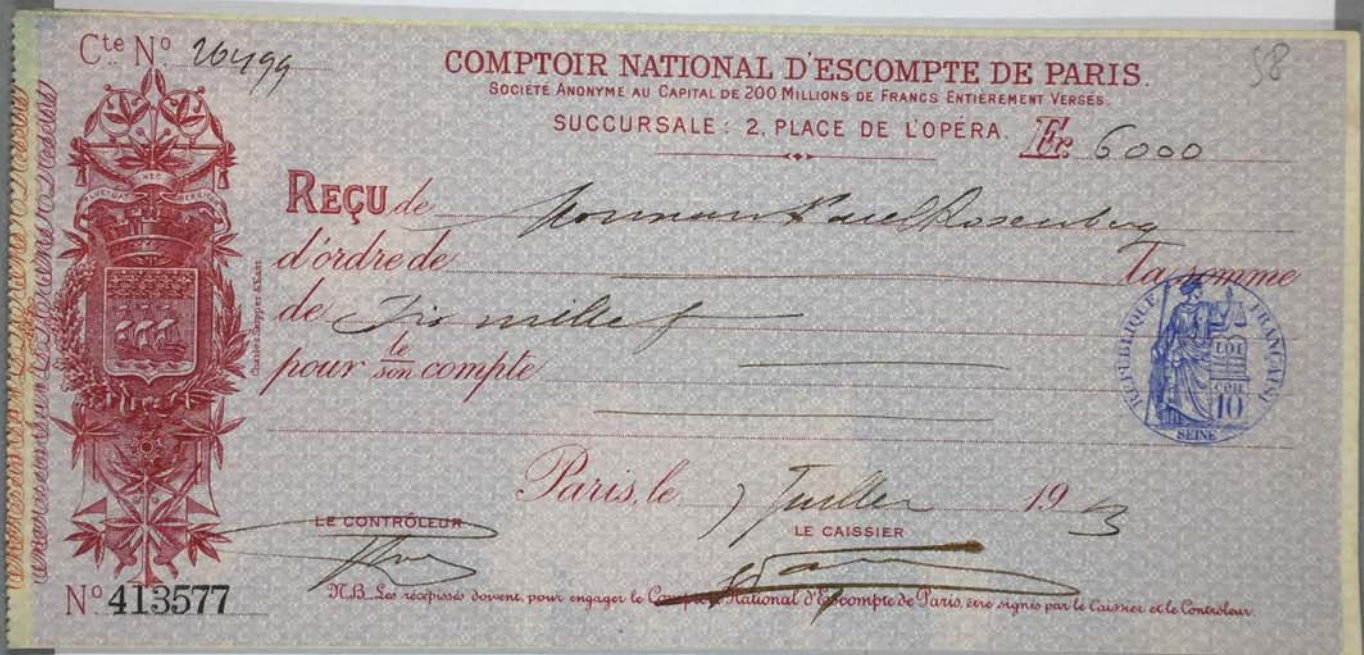 Cte No 26499
58
COMPTOIR NATIONAL D'ESCOMPTE DE PARIS.
SOCIÉTÉ ANONYME AU CAPITAL DE 200 MILLIONS DE FRANCS ENTIÈREMENT VERSÉS.
SUCCURSALE : 2, PLACE DE L'OPÉRA. Fr. 6000
NEC
REÇU de Paul Rosenberg
d'órdre de la somme
de Six mille f
pour le/son compte
RÉPUBLIQUE FRANÇAISE
LOI
COI
10
SEINE
Paris, le 7 Juillet 19
LE CONTRÔLEUR
LE CAISSIER
No 413577
N.B. Les récépissés doivent, pour engager le National d'Escompte de Paris, être signés par le Caissier et le Contrôleur.